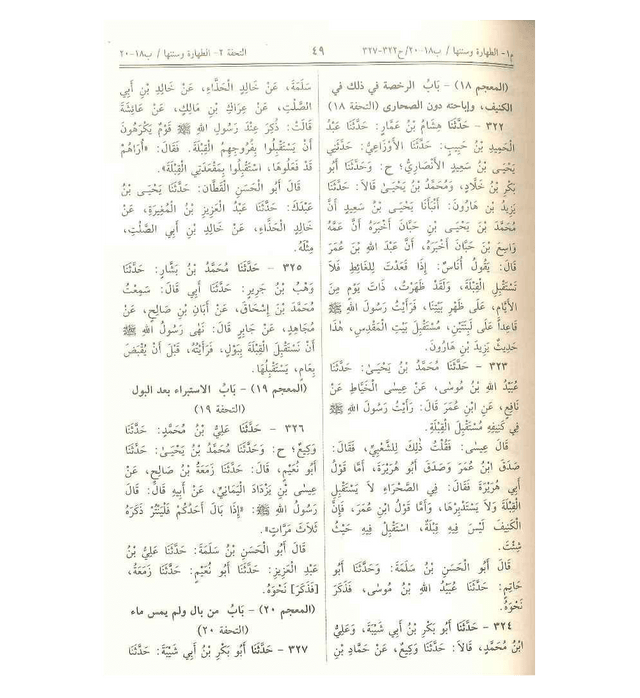 م١- الطهارة وسننها / ب١٨-٢٠/ح٣٢٢-٣٢٧
٤٩
التحفة ٢- الطهارة وسننها / ب١٨-٢٠
(المعجم ١٨) - بَابُ الرخصة في ذلك في
الكنيف، وإباحته دون الصحارى (التحفة ١٨)
٣٢٢ - حَدَّثَنَا هِشَامُ بْنُ عَمَّارٍ: حَدَّثَنَا عَبْدُ
الْحَمِيدِ بْنُ حَبِيبٍ: حَدَّثَنَا الأَوْزَاعِيُّ: حَدَّثَنِي
يَحْيَى بْنُ سَعِيدٍ الأَنْصَارِيُّ؛ ح: وَحَدَّثَنَا أَبُو
بَكْرِ بْنُ خَلَّادٍ، وَمُحَمَّدُ بْنُ يَحْيَىٰ قَالاَ: حَدَّثَنَا
يَزِيدُ بْنُ هَارُونَ: أَنْبَأَنَا يَحْيَى بْنُ سَعِيدٍ أَنَّ
مُحَمَّدَ بْنَ يَحْيَى بْنِ حَبَّانَ أَخْبَرَهُ أَنَّ عَمَّهُ
وَاسِعَ بْنَ حَبَّانَ أَخْبَرَهُ، أَنَّ عَبْدَ اللهِ بْنَ عُمَرَ
قَالَ: يَقُولُ أُنَاسٌ: إِذَا قَعَدْتَ لِلْغَائِطِ فَلاَ
تَسْتَقْبِلِ الْقِبْلَةَ، وَلَقَدْ ظَهَرْتُ، ذَاتَ يَوْمٍ مِنَ
الأَيَّامِ، عَلَى ظَهْرِ بَيْتِنَا، فَرَأَيْتُ رَسُولَ اللهِ ﷺ
قَاعِداً عَلَى لَبِنَتَيْنِ، مُسْتَقْبِلَ بَيْتِ الْمَقْدِسِ، هٰذَا
حَدِيثُ يَزِيدَ بْنِ هَارُونَ.
٣٢٣ - حَدَّثَنَا مُحَمَّدُ بْنُ يَحْيَىٰ: حَدَّثَنَا
عُبَيْدُ اللهِ بْنُ مُوسَى، عَنْ عِيسَى الْخَيَّاطِ عَنْ
نَافِعٍ، عَنِ ابْنِ عُمَرَ قَالَ: رَأَيْتُ رَسُولَ اللهِ ﷺ
فِي كَنِيفِهِ مُسْتَقْبِلَ الْقِبْلَةِ.
قَالَ عِيسَى: فَقُلْتُ ذٰلِكَ لِلشَّعْبِيِّ، فَقَالَ:
صَدَقَ ابْنُ عُمَرَ وَصَدَقَ أَبُو هُرَيْرَةَ، أَمَّا قَوْلُ
أَبِي هُرَيْرَةَ فَقَالَ: فِي الصَّحْرَاءِ لاَ يَسْتَقْبِلِ
الْقِبْلَةَ وَلاَ يَسْتَدْبِرْهَا، وَأَمَّا قَوْلُ ابْنِ عُمَرَ، فَإِنَّ
الْكَنِيفَ لَيْسَ فِيهِ قِبْلَةٌ، اسْتَقْبِلْ فِيهِ حَيْثُ
شِئْتَ.
قَالَ أَبُو الْحَسَنِ بْنُ سَلَمَةَ: وَحَدَّثَنَا أَبُو
حَاتِمٍ: حَدَّثَنَا عُبَيْدُ اللهِ بْنُ مُوسَى، فَذَكَرَ
نَحْوَهُ.
٣٢٤ - حَدَّثَنَا أَبُو بَكْرِ بْنُ أَبِي شَيْبَةَ، وَعَلِيُّ
ابْنُ مُحَمَّدٍ، قَالاَ: حَدَّثَنَا وَكِيعٌ، عَنْ حَمَّادِ بْنِ
سَلَمَةَ، عَنْ خَالِدٍ الْحَذَّاءِ، عَنْ خَالِدِ بْنِ أَبِي
الصَّلْتِ، عَنْ عِرَاكِ بْنِ مَالِكٍ، عَنْ عَائِشَةَ
قَالَتْ: ذُكِرَ عِنْدَ رَسُولِ اللهِ ﷺ قَوْمٌ يَكْرَهُونَ
أَنْ يَسْتَقْبِلُوا بِفُرُوجِهِمُ الْقِبْلَةَ. فَقَالَ: «أُرَاهُمْ
قَدْ فَعَلُوهَا، اسْتَقْبِلُوا بِمَقْعَدَتِي الْقِبْلَةَ».
قَالَ أَبُو الْحَسَنِ الْقَطَّانُ: حَدَّثَنَا يَحْيَى بْنُ
عَبْدَكَ: حَدَّثَنَا عَبْدُ الْعَزِيزِ بْنُ الْمُغِيرَةِ، عَنْ
خَالِدٍ الْحَذَّاءِ، عَنْ خَالِدِ بْنِ أَبِي الصَّلْتِ،
مِثْلَهُ.
٣٢٥ - حَدَّثَنَا مُحَمَّدُ بْنُ بَشَّارٍ: حَدَّثَنَا
وَهْبُ بْنُ جَرِيرٍ: حَدَّثَنَا أَبِي قَالَ: سَمِعْتُ
مُحَمَّدَ بْنَ إِسْحَاقَ، عَنْ أَبَانِ بْنِ صَالِحٍ، عَنْ
مُجَاهِدٍ، عَنْ جَابِرٍ قَالَ: نَهَى رَسُولُ اللهِ ﷺ
أَنْ نَسْتَقْبِلَ الْقِبْلَةَ بِبَوْلٍ، فَرَأَيْتُهُ، قَبْلَ أَنْ يُقْبَضَ
بِعَامٍ، يَسْتَقْبِلُهَا.
(المعجم ١٩) - بَابُ الاستبراء بعد البول
(التحفة ١٩)
٣٢٦ - حَدَّثَنَا عَلِيُّ بْنُ مُحَمَّدٍ: حَدَّثَنَا
وَكِيعٌ؛ ح: وَحَدَّثَنَا مُحَمَّدُ بْنُ يَحْيَىٰ: حَدَّثَنَا
أَبُو نُعَيْمٍ، قَالَ: حَدَّثَنَا زَمَعَةُ بْنُ صَالِحٍ، عَنْ
عِيسَى بْنِ يَزْدَادَ الْيَمَانِيِّ، عَنْ أَبِيهِ قَالَ: قَالَ
رَسُولُ اللهِ ﷺ: «إِذَا بَالَ أَحَدُكُمْ فَلْيَنْتُرْ ذَكَرَهُ
ثَلاَثَ مَرَّاتٍ».
قَالَ أَبُو الْحَسَنِ بْنُ سَلَمَةَ: حَدَّثَنَا عَلِيُّ بْنُ
عَبْدِ الْعَزِيزِ: حَدَّثَنَا أَبُو نُعَيْمٍ: حَدَّثَنَا زَمْعَةُ،
[فَذَكَرَ] نَحْوَهُ.
(المعجم ٢٠) - بَابُ من بال ولم يمس ماء
(التحفة ٢٠)
٣٢٧ - حَدَّثَنَا أَبُو بَكْرِ بْنُ أَبِي شَيْبَةَ: حَدَّثَنَا